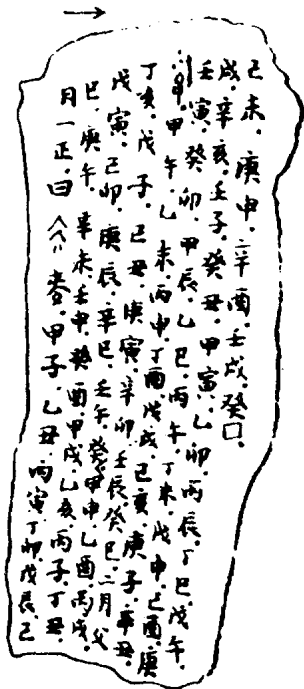 月一正.曰麥.甲子.乙丑.丙寅丁卯戊辰.己
巳.庚午.辛未.壬申.癸酉.甲戌.乙亥.丙子.丁丑.
戊寅.己卯.庚辰.辛巳.壬午.癸甲申.乙酉.丙戌.
丁亥.戊子.己丑.庚寅.辛卯.壬辰.癸巳.二月父
甲午.乙未.丙申.丁酉.戊戌.己亥.庚子.辛丑.
壬寅.癸卯.甲辰.乙巳.丙午.丁未.戊申.己酉.庚
戌.辛亥.壬子.癸丑.甲寅.乙卯.丙辰.丁巳.戊午.
己未.庚申.辛酉.壬戌.癸□.